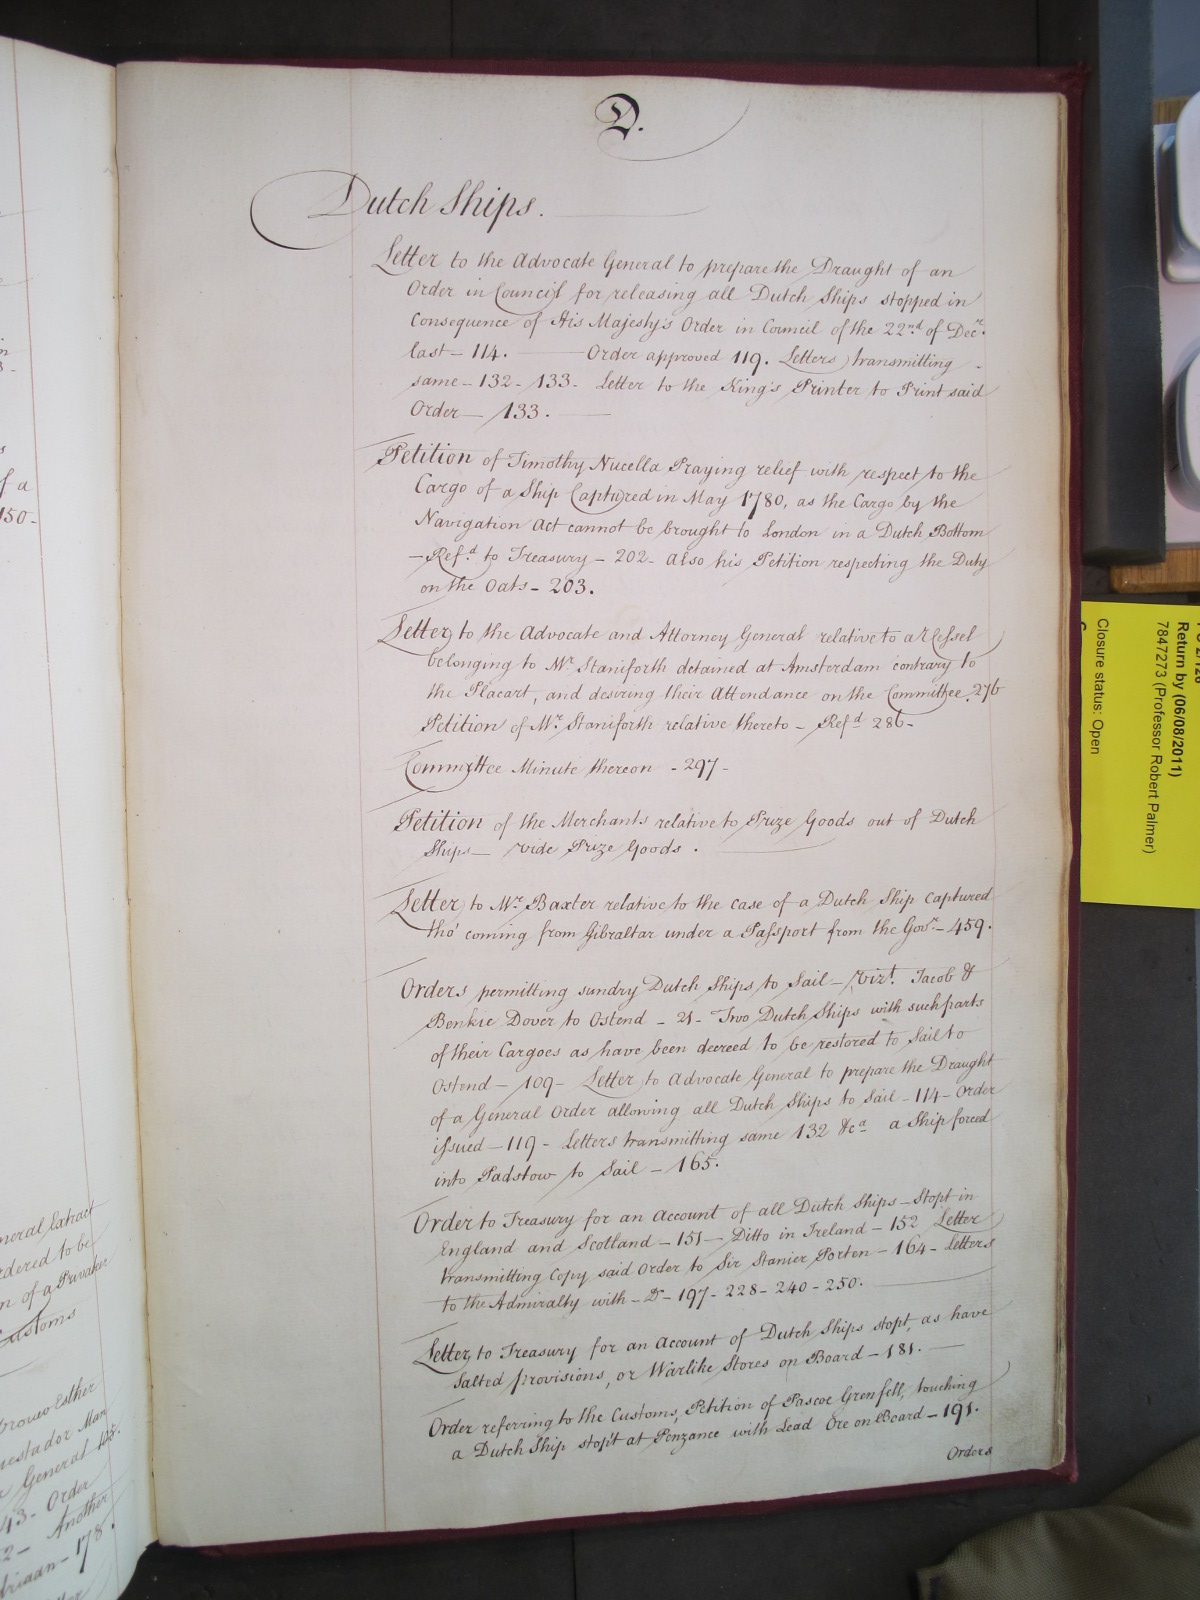 D.
Dutch Ships.
Letter to the Advocate General to prepare the Draught of an
Order in Council for releasing all Dutch Ships stopped in
Consequence of His Majesty's Order in Council of the 22nd of Decr.
last - 114. Order approved 119. Letters transmitting
same - 132 - 133 - Letter to the King's Printer to Print said
Order - 133.
Petition of Timothy Nucella Praying relief with respect to the
Cargo of a Ship Captured in May 1780, as the Cargo by the
Navigation Act cannot be brought to London in a Dutch Bottom
- Refd to Treasury - 202 - Also his Petition respecting the Duty
on the Oats - 203.
Letter to the Advocate and Attorney General relative to a Vessel
belonging to Mr Staniforth detained at Amsterdam contrary to
the Placart, and desiring their Attendance on the Committee. 276
Petition of Mr Staniforth relative thereto - Refd 286 -
Committee Minute thereon - 297 -
Petition of the Merchants relative to Prize Goods out of Dutch
Ships - vide Prize Goods.
Letter to Mr Baxter relative to the case of a Dutch Ship captured
tho' coming from Gibraltar under a Passport from the Govr - 459.
Orders permitting sundry Dutch Ships to Sail - vizt. Jacob &
Benkie Dover to Ostend - 21 - Two Dutch Ships with such parts
of their Cargoes as have been decreed to be restored to Sail to
Ostend - 109 - Letter to Advocate General to prepare the Draught
of a General Order allowing all Dutch Ships to Sail - 114 - Order
issued - 119 - Letters transmitting same 132 &ca a Ship forced
into Padstow to Sail - 165.
Order to Treasury for an Account of all Dutch Ships - Stopt in
England and Scotland - 151 - Ditto in Ireland - 152 Letter
transmitting Copy said Order to Sir Stanier Porten - 164 - Letters
to the Admiralty with - Do - 197 - 228 - 240 - 250.
Letter to Treasury for an Account of Dutch Ships stopt, as have
Salted provisions, or Warlike Stores on Board - 181.
Order referring to the Customs, Petition of Pascoe Grenfell, touching
a Dutch Ship stop't at Penzance with Lead Ore on Board - 191.
Orders
f a
150 -
neral Extract
rdered to be
n of a Privateer
Customs
Esther
Man
General
43 - Order
Another
178.
Return by (06/08/2011)
7847273 (Professor Robert Palmer)
Closure status: Open